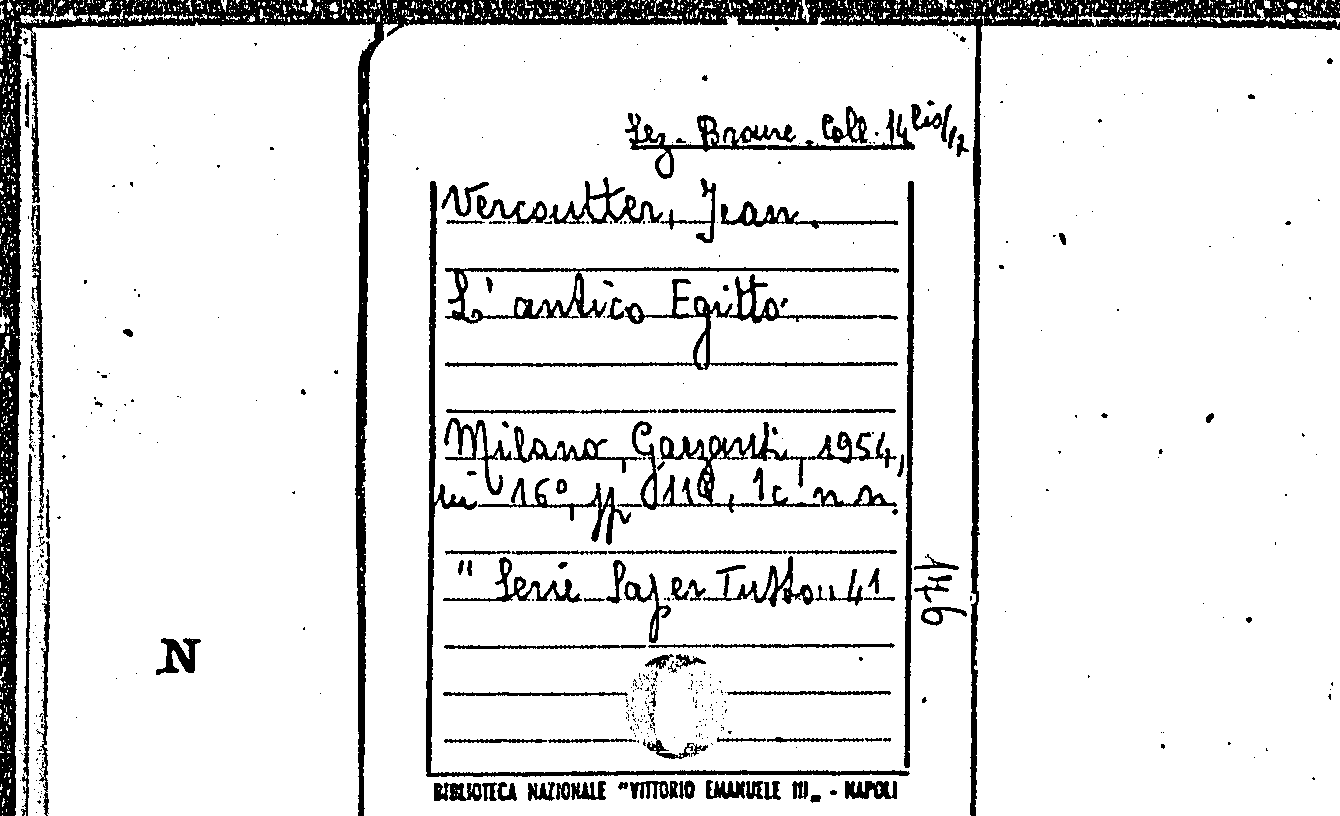 Sez. Brane. Coll. 14 bis/17
Vercoutter, Jean.
L'antico Egitto.
Milano, Garzanti, 1954,
in 16°, pp. 118, 1c. n n.
"Serie Saper Tutto" 41
146
N
BIBLIOTECA NAZIONALE "VITTORIO EMANUELE III„ - NAPOLI